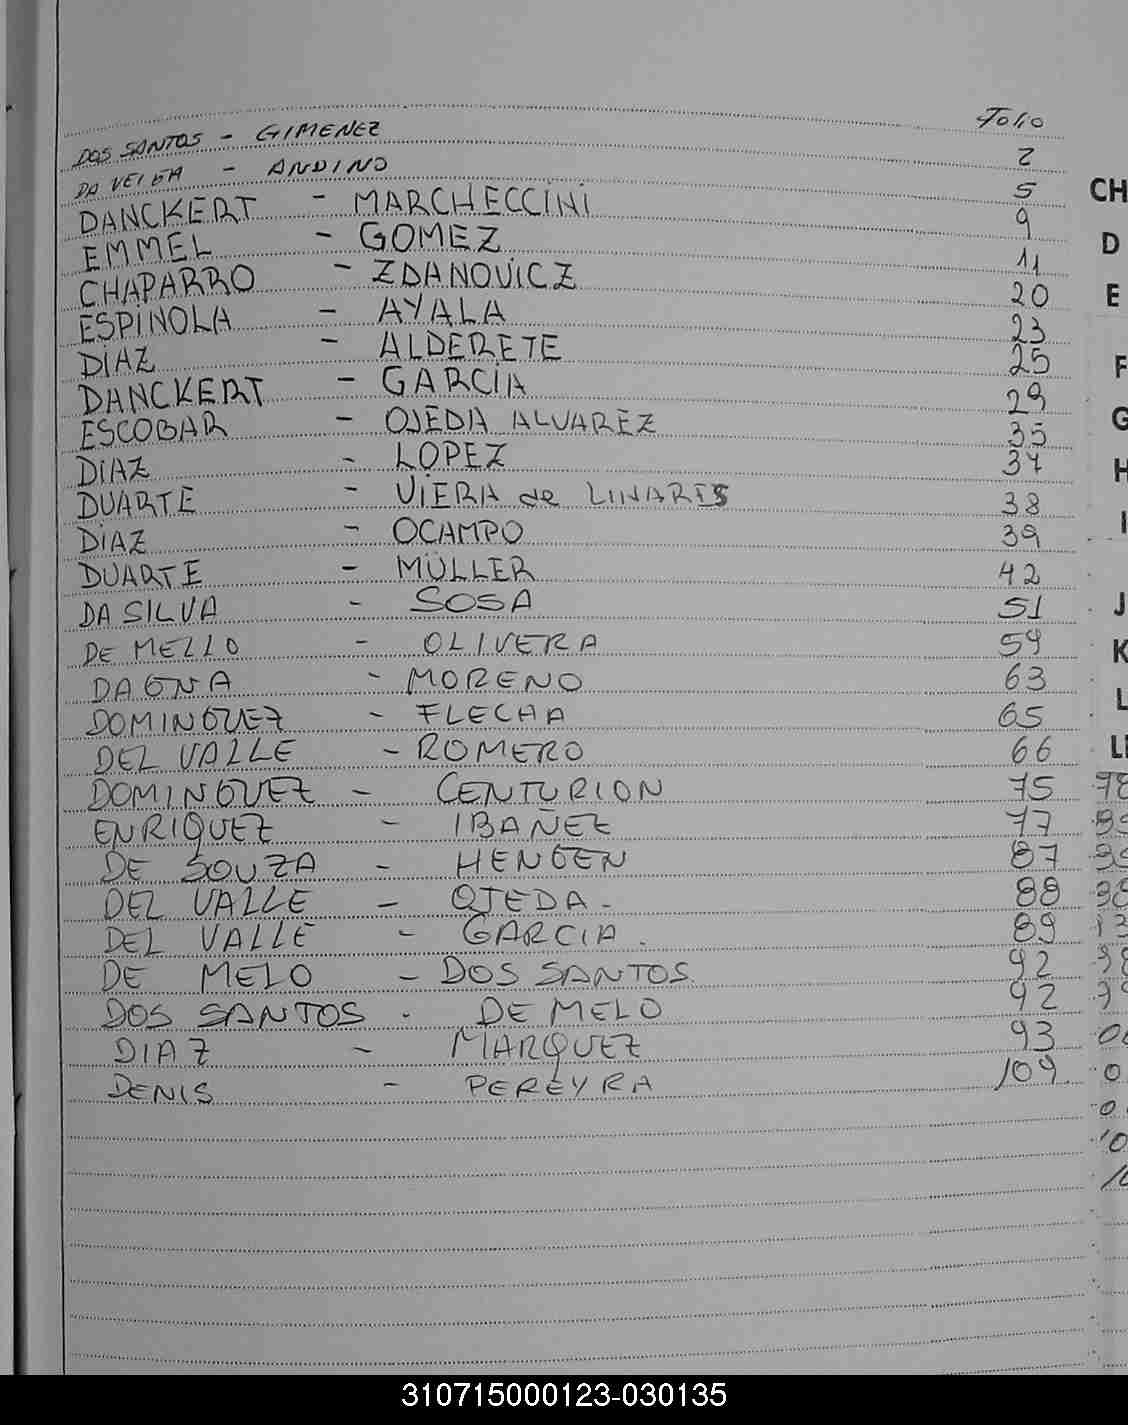 Folio
DOS SANTOS - GIMENEZ 2
DA VEIGA - ANDINO 5
DANCKERT - MARCHECCINI 9
EMMEL - GOMEZ 11
CHAPARRO - ZDANOVICZ 20
ESPINOLA - AYALA 23
DIAZ - ALDERETE 25
DANCKERT - GARCIA 29
ESCOBAR - OJEDA ALVAREZ 35
DIAZ - LOPEZ 37
DUARTE - VIERA de LINARES 38
DIAZ - OCAMPO 39
DUARTE - MÜLLER 42
DA SILVA - SOSA 51
DE MELLO - OLIVERA 59
DAGNA - MORENO 63
DOMINGUEZ - FLECHA 65
DEL VALLE - ROMERO 66
DOMINGUEZ - CENTURION 75
ENRIQUEZ - IBAÑEZ 77
DE SOUZA - HENGEN 87
DEL VALLE - OJEDA. 88
DEL VALLE - GARCIA. 89
DE MELO - DOS SANTOS. 92
DOS SANTOS. DE MELO 92
DIAZ - MARQUEZ 93
DENIS - PEREYRA 109
CH
D
E
F
G
H
I
J
K
L
310715000123-030135